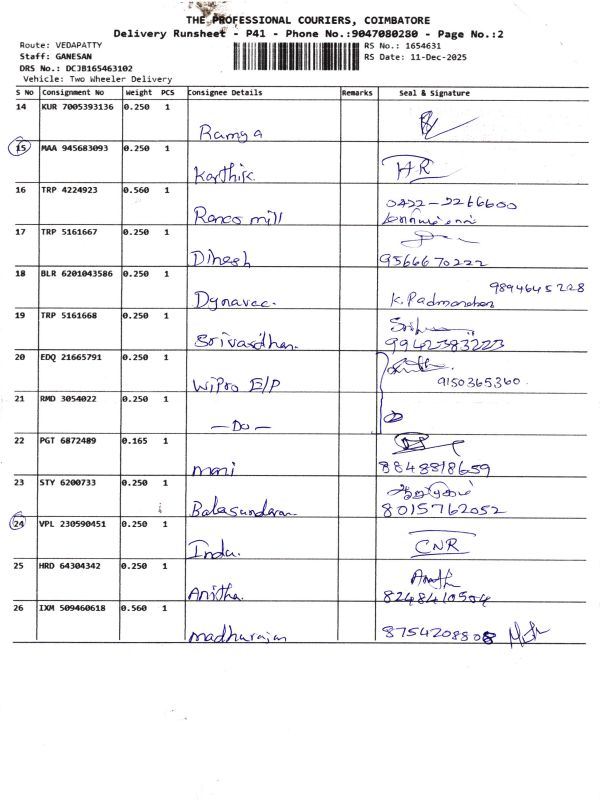 THE PROFESSIONAL COURIERS, COIMBATORE
Delivery Runsheet - P41 - Phone No.:9047080280 - Page No.:2
Route: VEDAPATTY RS No.: 1654631
Staff: GANESAN RS Date: 11-Dec-2025
DRS No.: DCJB165463102
Vehicle: Two Wheeler Delivery
S No Consignment No Weight PCS Consignee Details Remarks Seal & Signature
14 KUR 7005393136 0.250 1
Ramya
15 MAA 945683093 0.250 1
Karthik HR
16 TRP 4224923 0.560 1
0422-2266600
Ranco mill
17 TRP 5161667 0.250 1
Dinesh 9566670222
18 BLR 6201043586 0.250 1
9894645228
Dynavac. K. Padmanaban
19 TRP 5161668 0.250 1
Srivardhan. 9942383223
20 EDQ 21665791 0.250 1
WIPRO E/P 9150365360
21 RMD 3054022 0.250 1
- Do -
22 PGT 6872489 0.165 1
mani 8848818659
23 STY 6200733 0.250 1
Balasundaram 8015762052
24 VPL 230590451 0.250 1
Indu. CNR
25 HRD 64304342 0.250 1
Anitha. 8248410504
26 IXM 509460618 0.560 1
madhurajan 8754208808